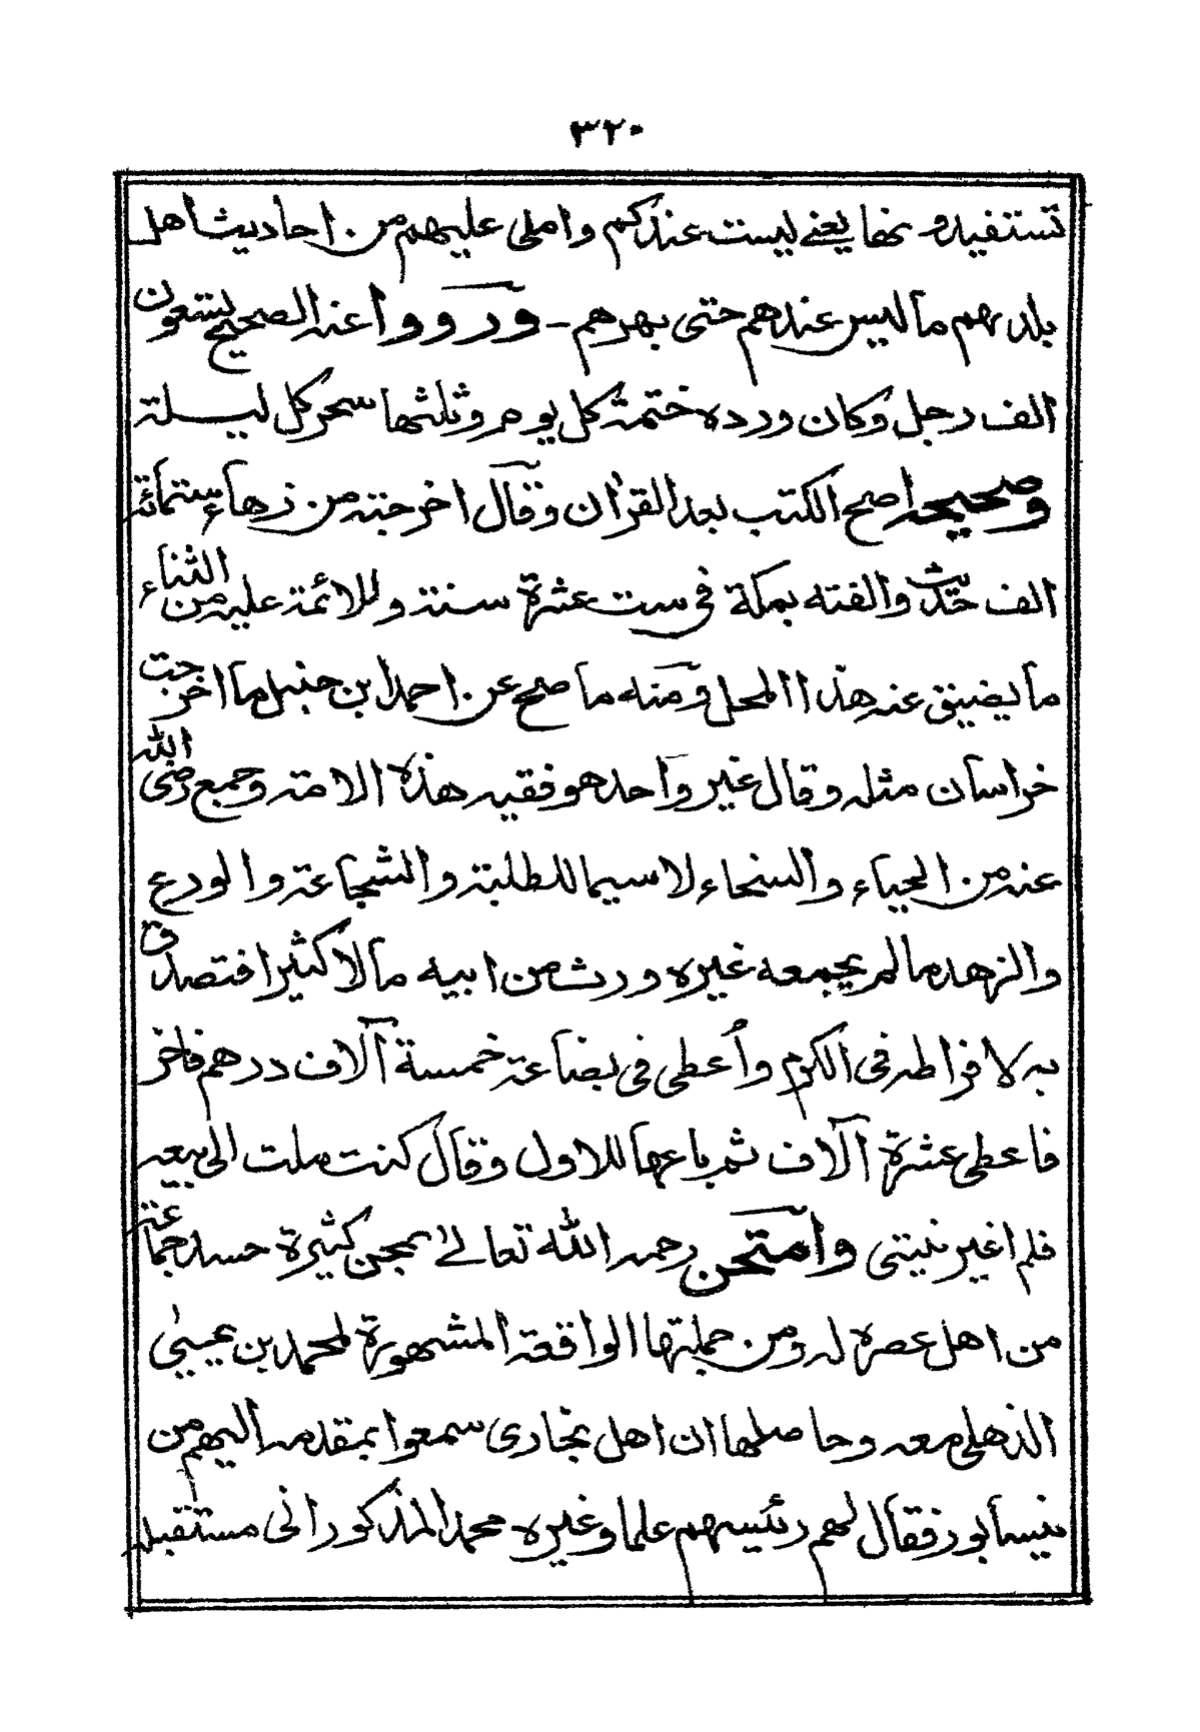 ٣٢٠
تستفيدونها يعنے ليست عندكم واملى عليهم من احاديث اهل
بلدبهم ما ليس عندهم حتى بهرهم - ورووا عنه الصحيح تسعون
الف رجل وكان ورده ختمة كل يوم وثلثها سحر كل ليلة
وصحيحه اصح الكتب بعد القرآن وقال اخرجته من زهاء ستمائة
الف حديث والفته بمكة فى ست عشرة سنة وللائمة عليه من الثناء
ما يضيق عنه هذا المحل ومنه ما صح عن احمد ابن حنبل ما اخرجت
خراسان مثله وقال غير واحد هو فقيه هذه الامة وجمع رضى الله
عنه من الحياء والسخاء لا سيما للطلبة والشجاعة والورع
والزهد ما لم يجمعه غيره ورث من ابيه مالا كثيرا فتصدق
به لافراطه فى الكرم وأعطى فى بضاعة خمسة آلاف درهم فاخر
فاعطى عشرة آلاف ثم باعها للاول وقال كنت ملت الى بيعه
فلم اغير نيتى وامتحن رحمه الله تعالے بمحن كثيرة حسد جماعة
من اهل عصره له ومن جملتها الواقعة المشهورة لمحمد بن يحيىٰ
الذهلى معه وحاصلها ان اهل بخارى سمعوا بمقدمه اليهم من
نيسابور فقال لهم رئيسهم علما وغيره محمد المذكور انى مستقبله